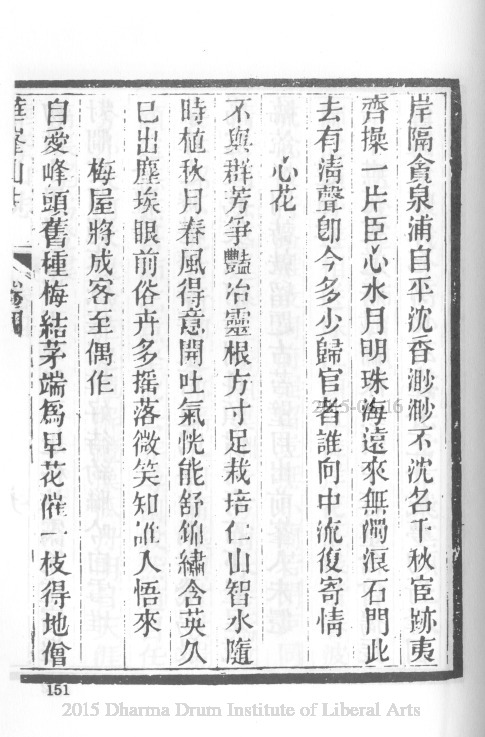 岸隔貪泉浦自平沈香渺渺不沈名千秋宦跡夷
齊操一片臣心水月明珠海遠來無濁浪石門此
去有淸聲卽今多少歸官者誰向中流復寄情
心花
不與群芳爭豔冶靈根方寸足栽培仁山智水隨
時植秋月春風得意開吐氣恍能舒錦繡含英久
已出塵埃眼前俗卉多搖落微笑知誰入悟來
梅屋將成客至偶作
自愛峰頭舊種梅結茅端爲早花催一枝得地僧
華峯山志
151
2015 Dharma Drum Institute of Liberal Arts